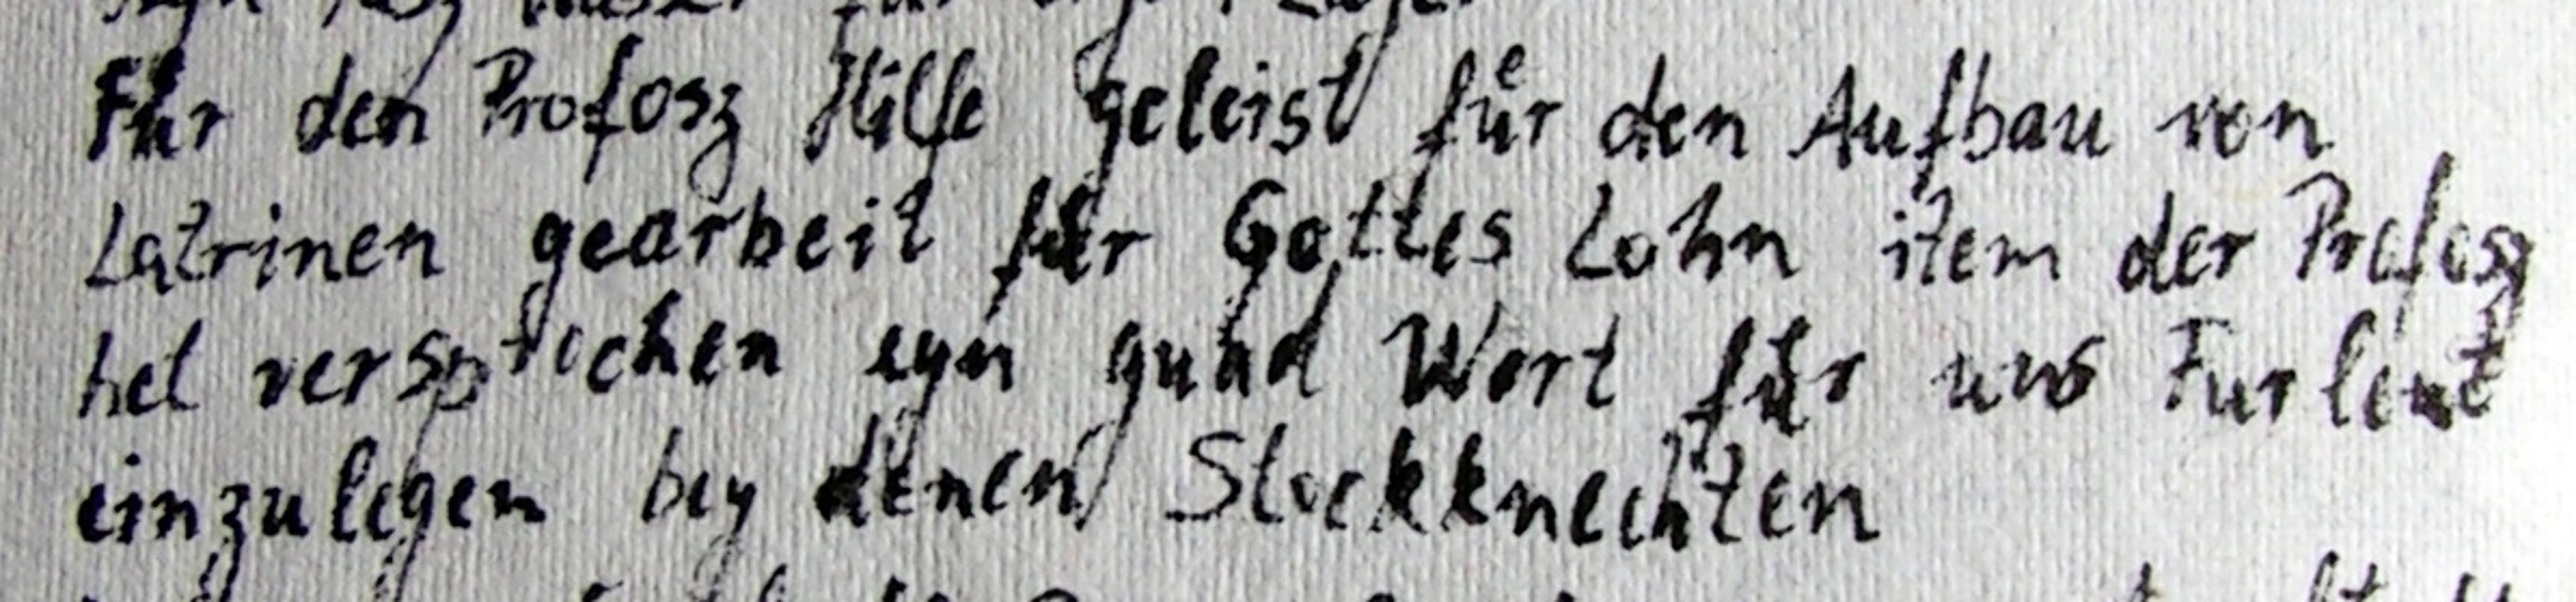 Für den Profosz Hilfe geleist fuͤr den Aufbau von
Latrinen gearbeit für Gottes Lohn item der Profosz
het versprochen eyn guhd Wort für uns Furleut
einzulegen bey denen Stockknechten